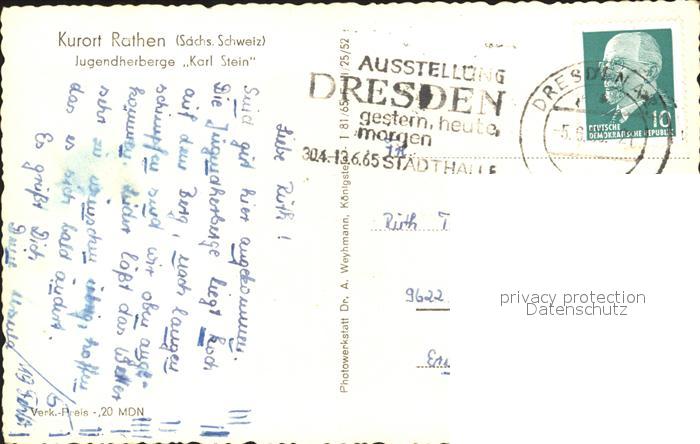 Kurort Rathen (Sächs. Schweiz)
Jugendherberge „Karl Stein"
Liebe Ruth!
Sind gut hier angekommen.
Die Jugendherberge liegt hoch
auf dem Berg, nach langen
wir oben ange-
kommen. Leider läßt das Wetter
sehr zu wünschen übrig, hoffen
das es sich bald ändert.
Es grüßt Dich
Deine
Verk.-Preis -,20 MDN
Photowerkstatt Dr. A. Weyhmann, Königstein
AUSSTELLUNG
DRESDEN
gestern, heute,
morgen
30.4.-13.6.65 STADTHALLE
DRESDEN
DEUTSCHE
DEMOKRATISCHE REPUBLIK
10
Ruth T
9622
privacy protection
Datenschutz